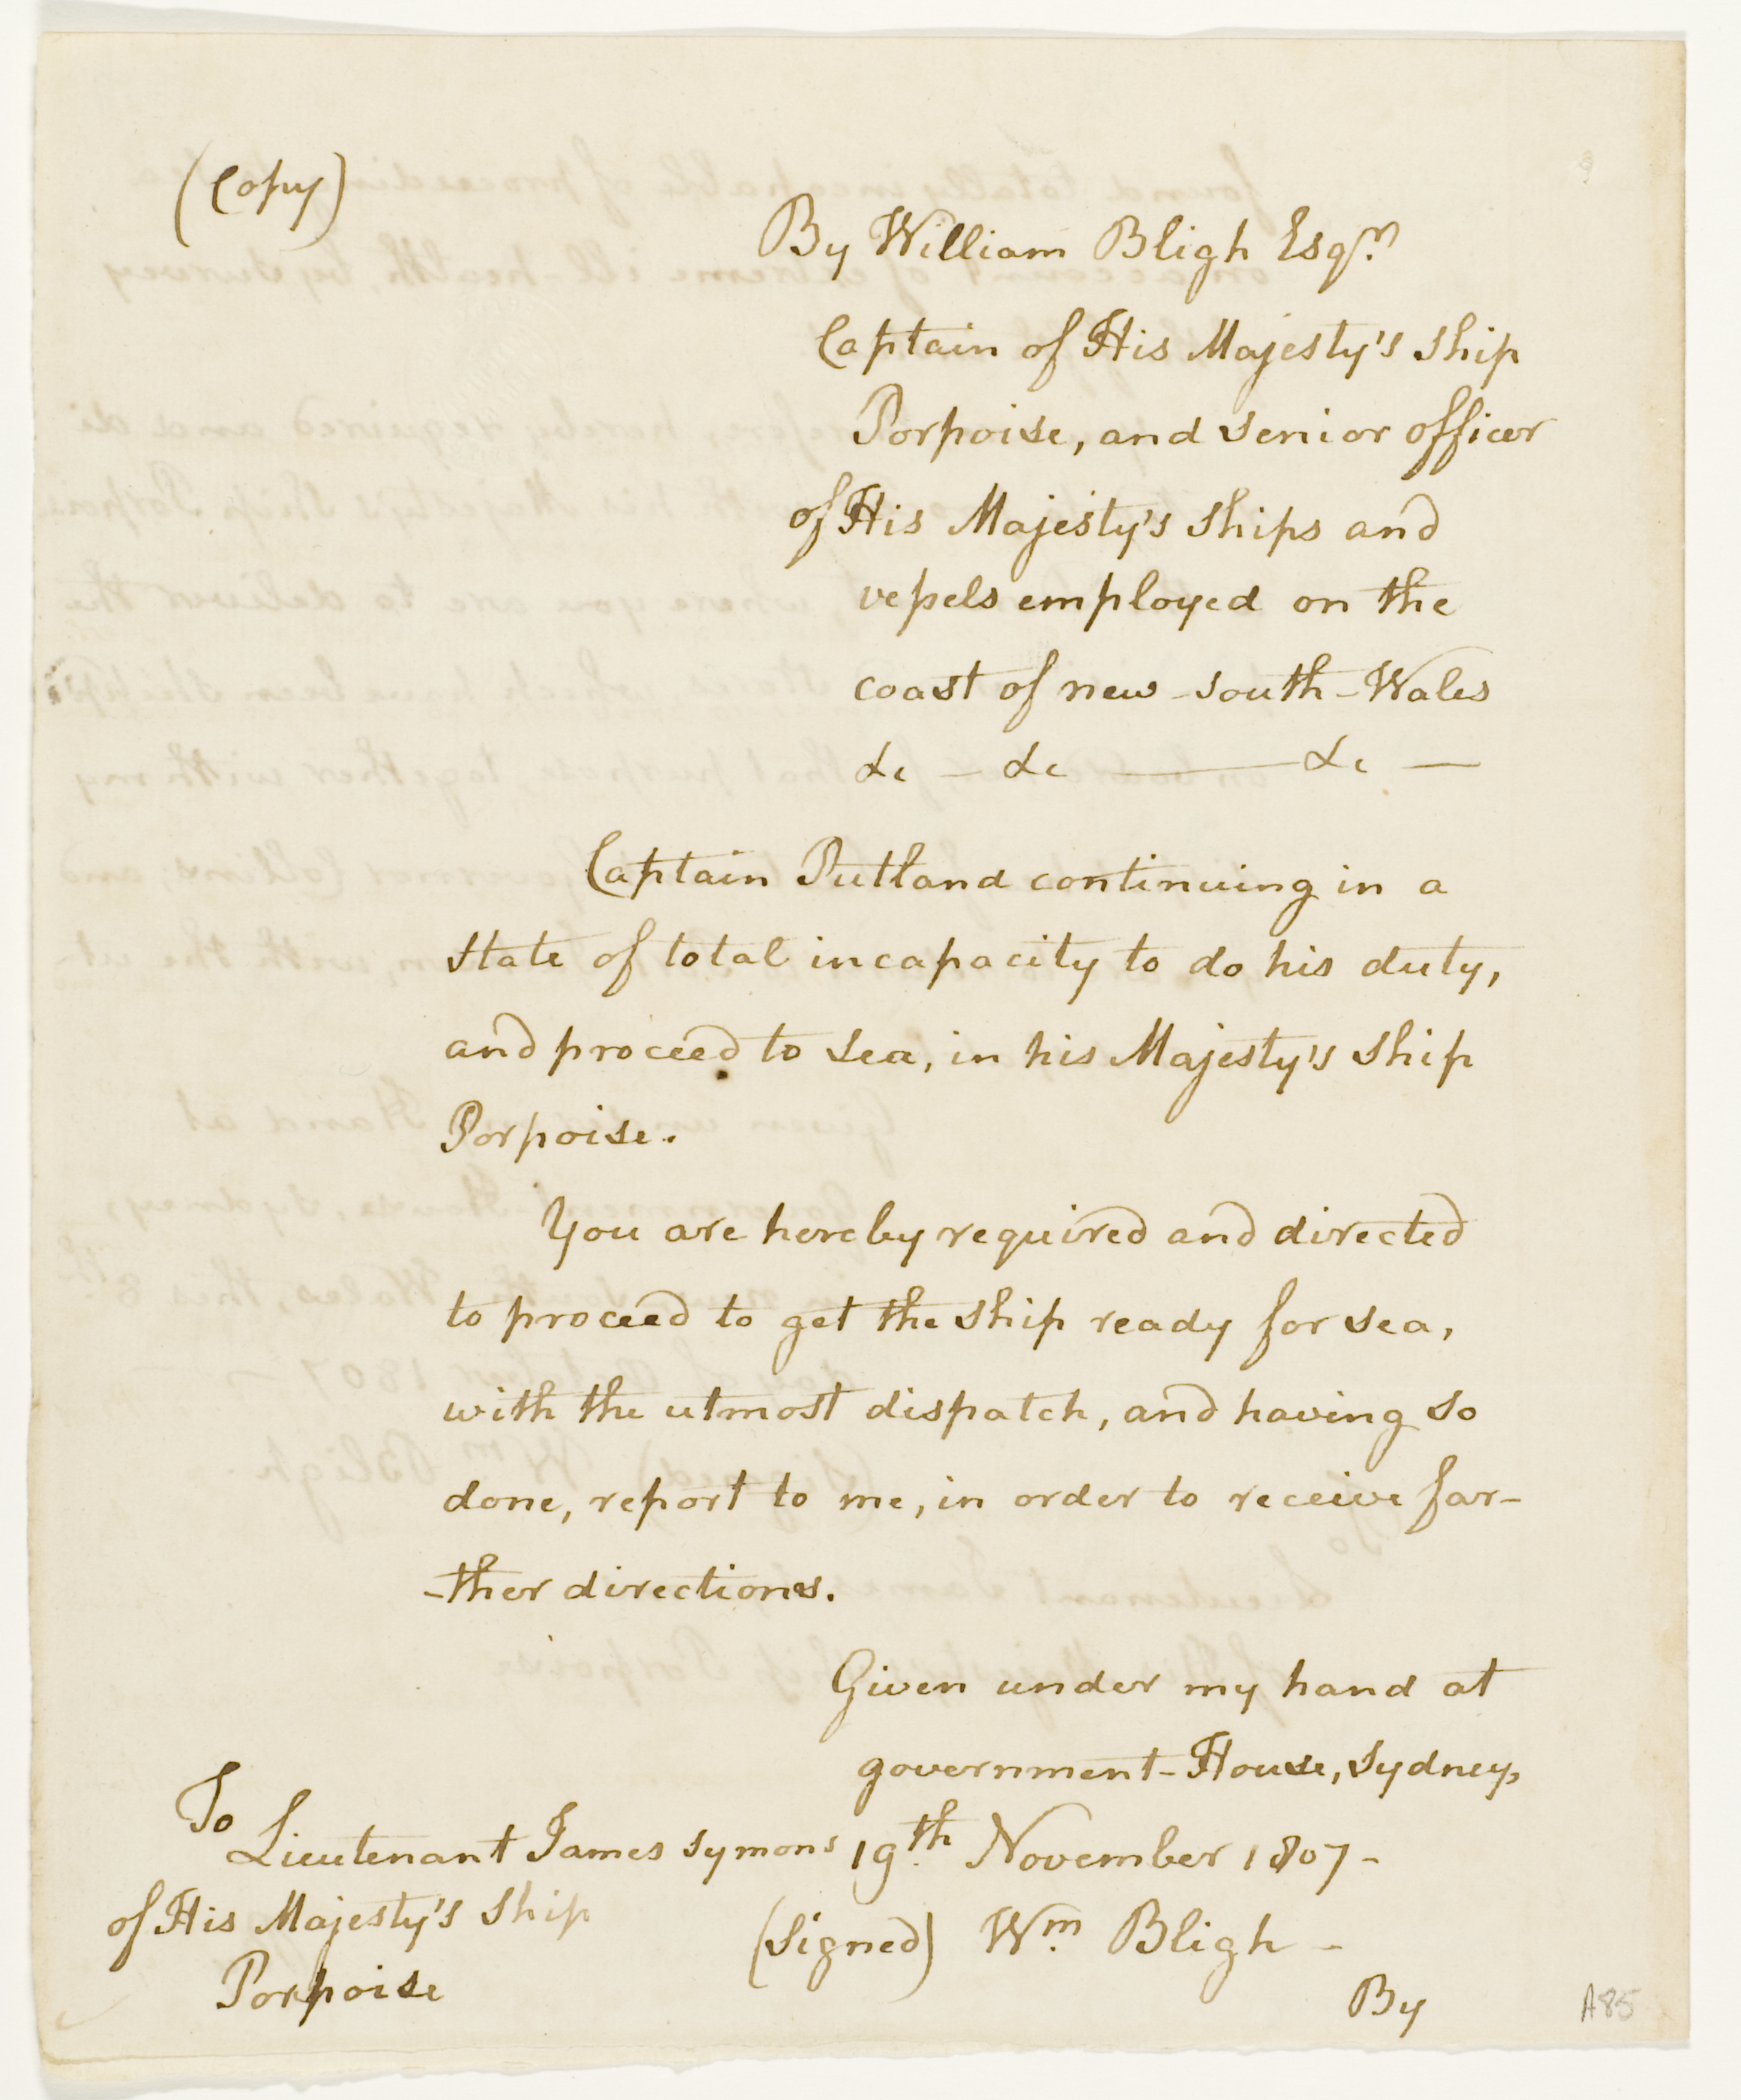 (Copy)
By William Bligh Esqr.
Captain of His Majesty's Ship
Porpoise, and senior officer
of His Majesty's Ships and
vessels employed on the
coast of new-south-Wales
&c — &c ——— &c —
Captain Putland continuing in a
state of total incapacity to do his duty,
and proceed to sea, in his Majesty's Ship
Porpoise.
You are hereby required and directed
to proceed to get the ship ready for sea,
with the utmost dispatch, and having so
done, report to me, in order to receive far-
-ther directions.
Given under my hand at
government-House, Sydney,
19th November 1807-
(Signed) Wm. Bligh -
To
Lieutenant James Symons
of His Majesty's Ship
Porpoise
By
A85